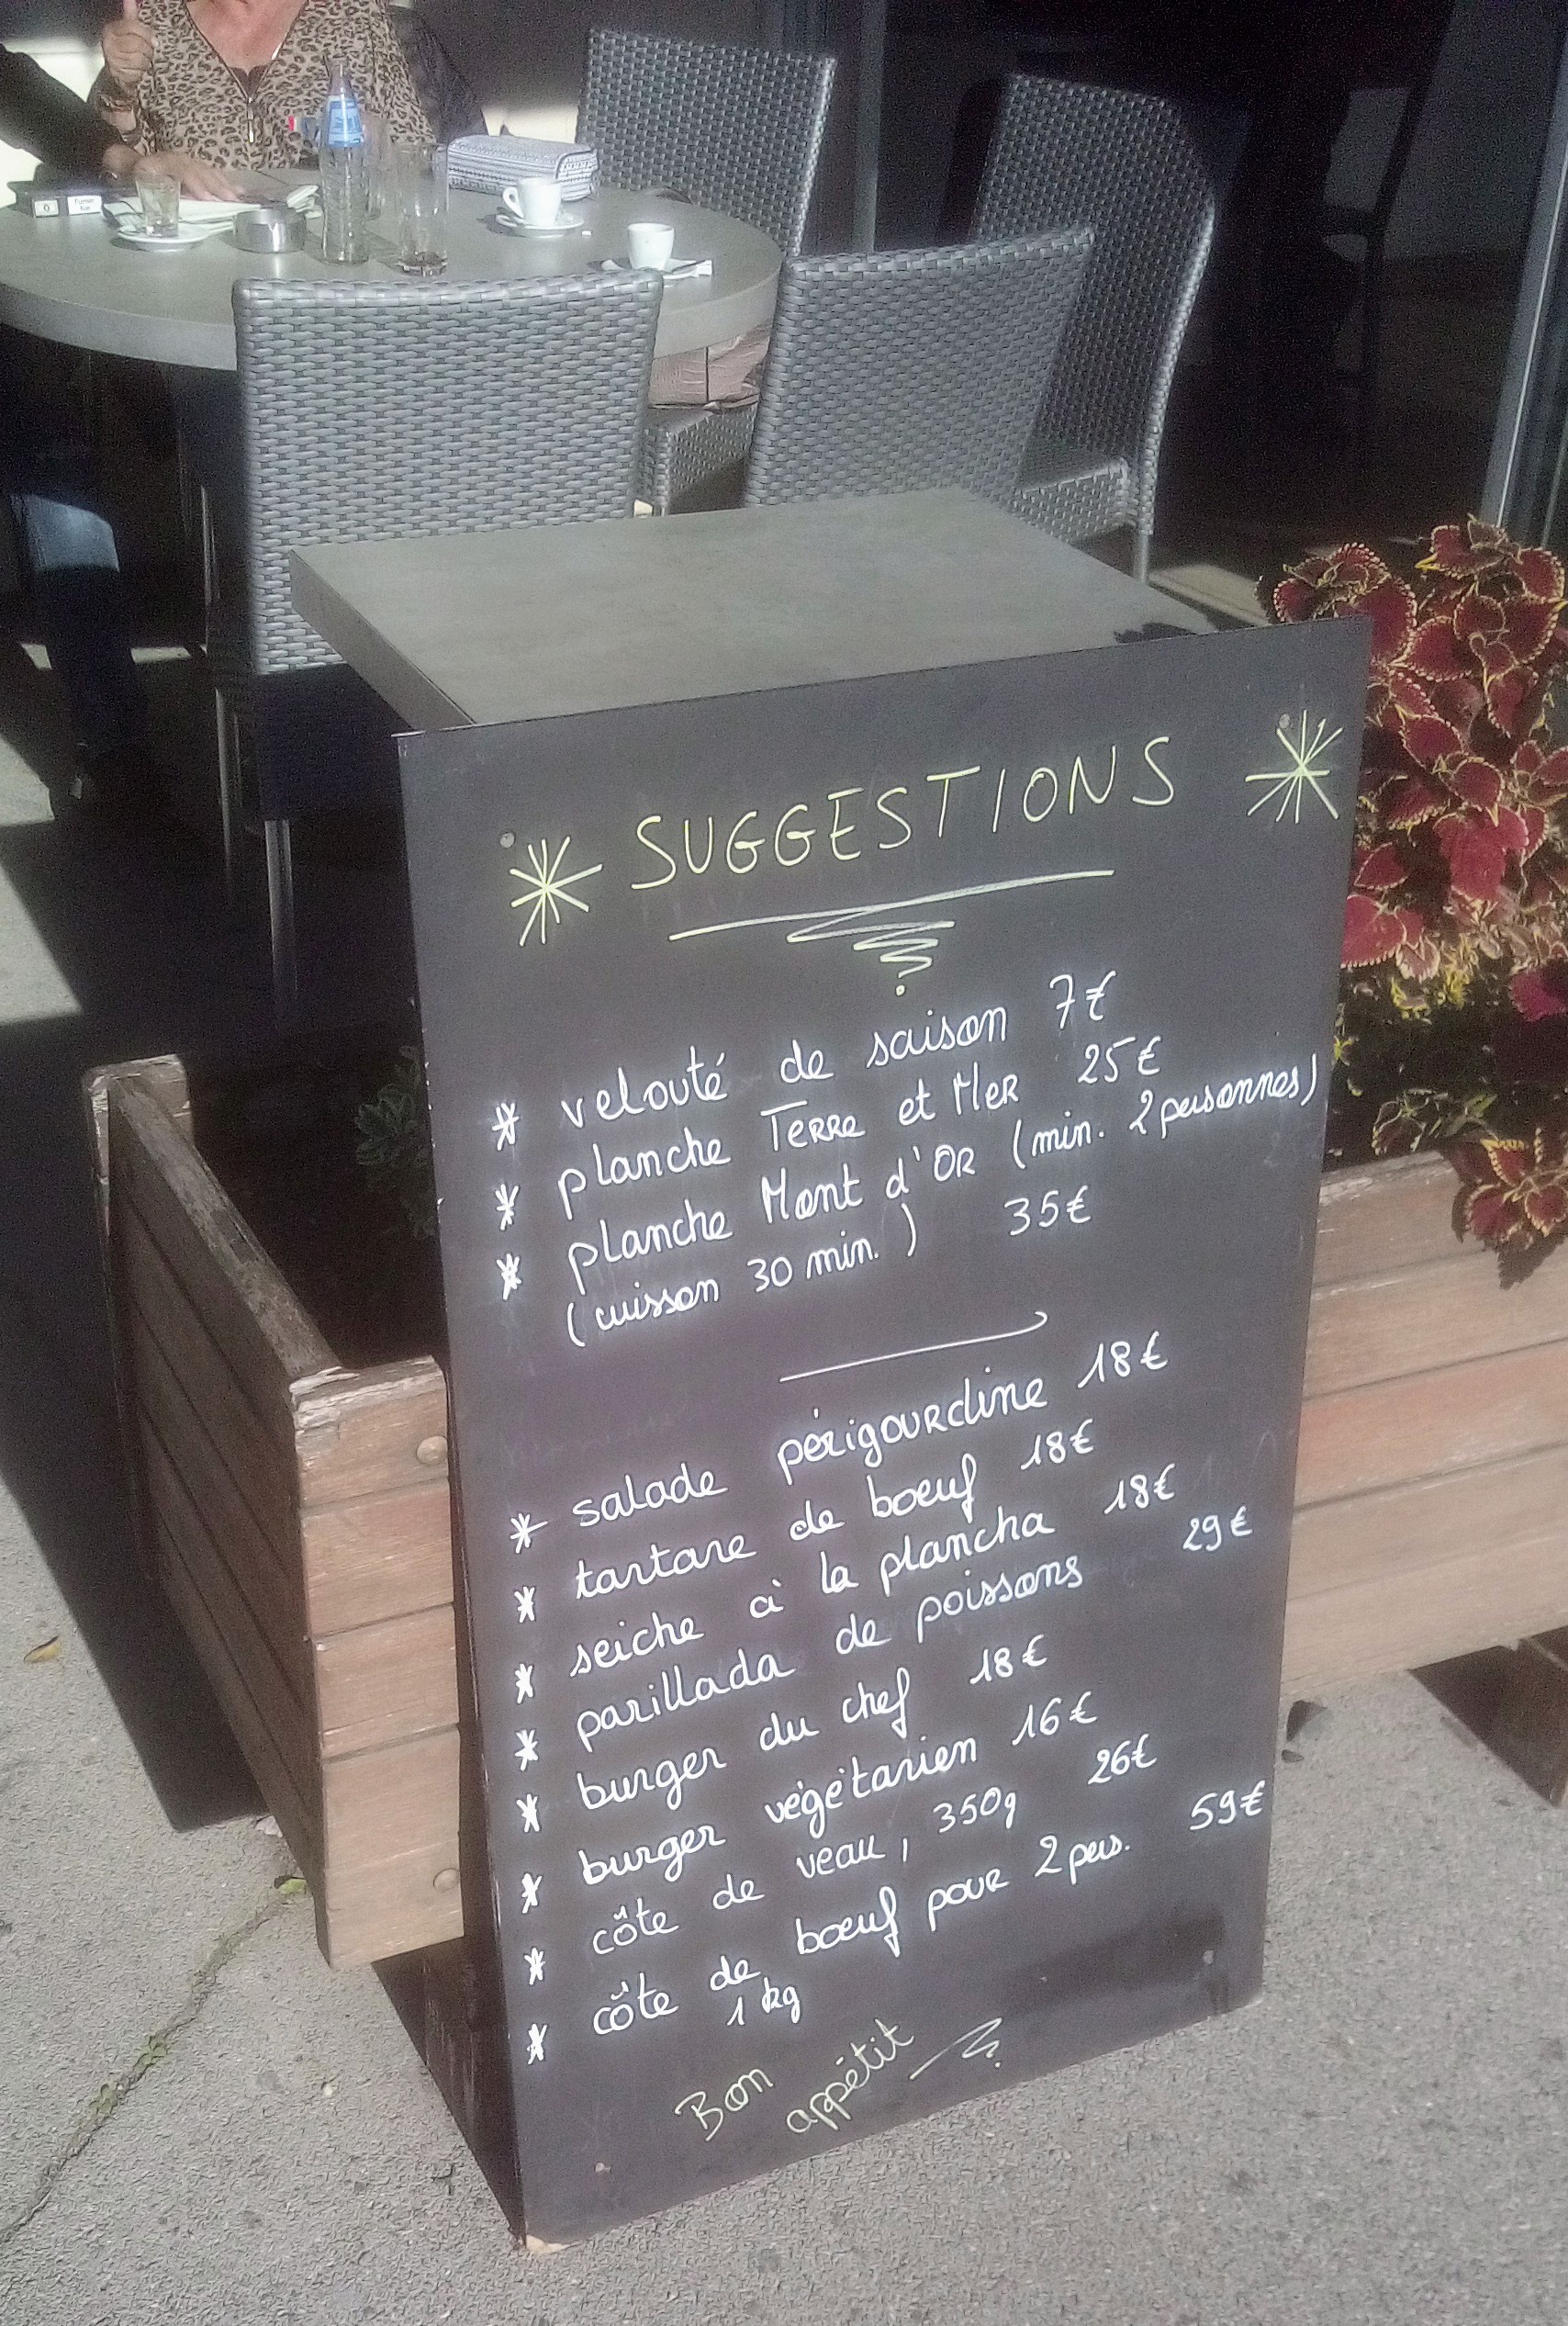 SUGGESTIONS
* velouté de saison 7€
* planche Terre et Mer 25€
* planche Mont d'Or (min. 2 personnes)
(cuisson 30 min.) 35€
* salade périgourdine 18€
* tartare de boeuf 18€
* seiche à la plancha 18€
* parillada de poissons 29€
* burger du chef 18€
* burger végétarien 16€
* côte de veau, 350g 26€
* côte de boeuf pour 2 pers. 59€
1 kg
Bon
appétit